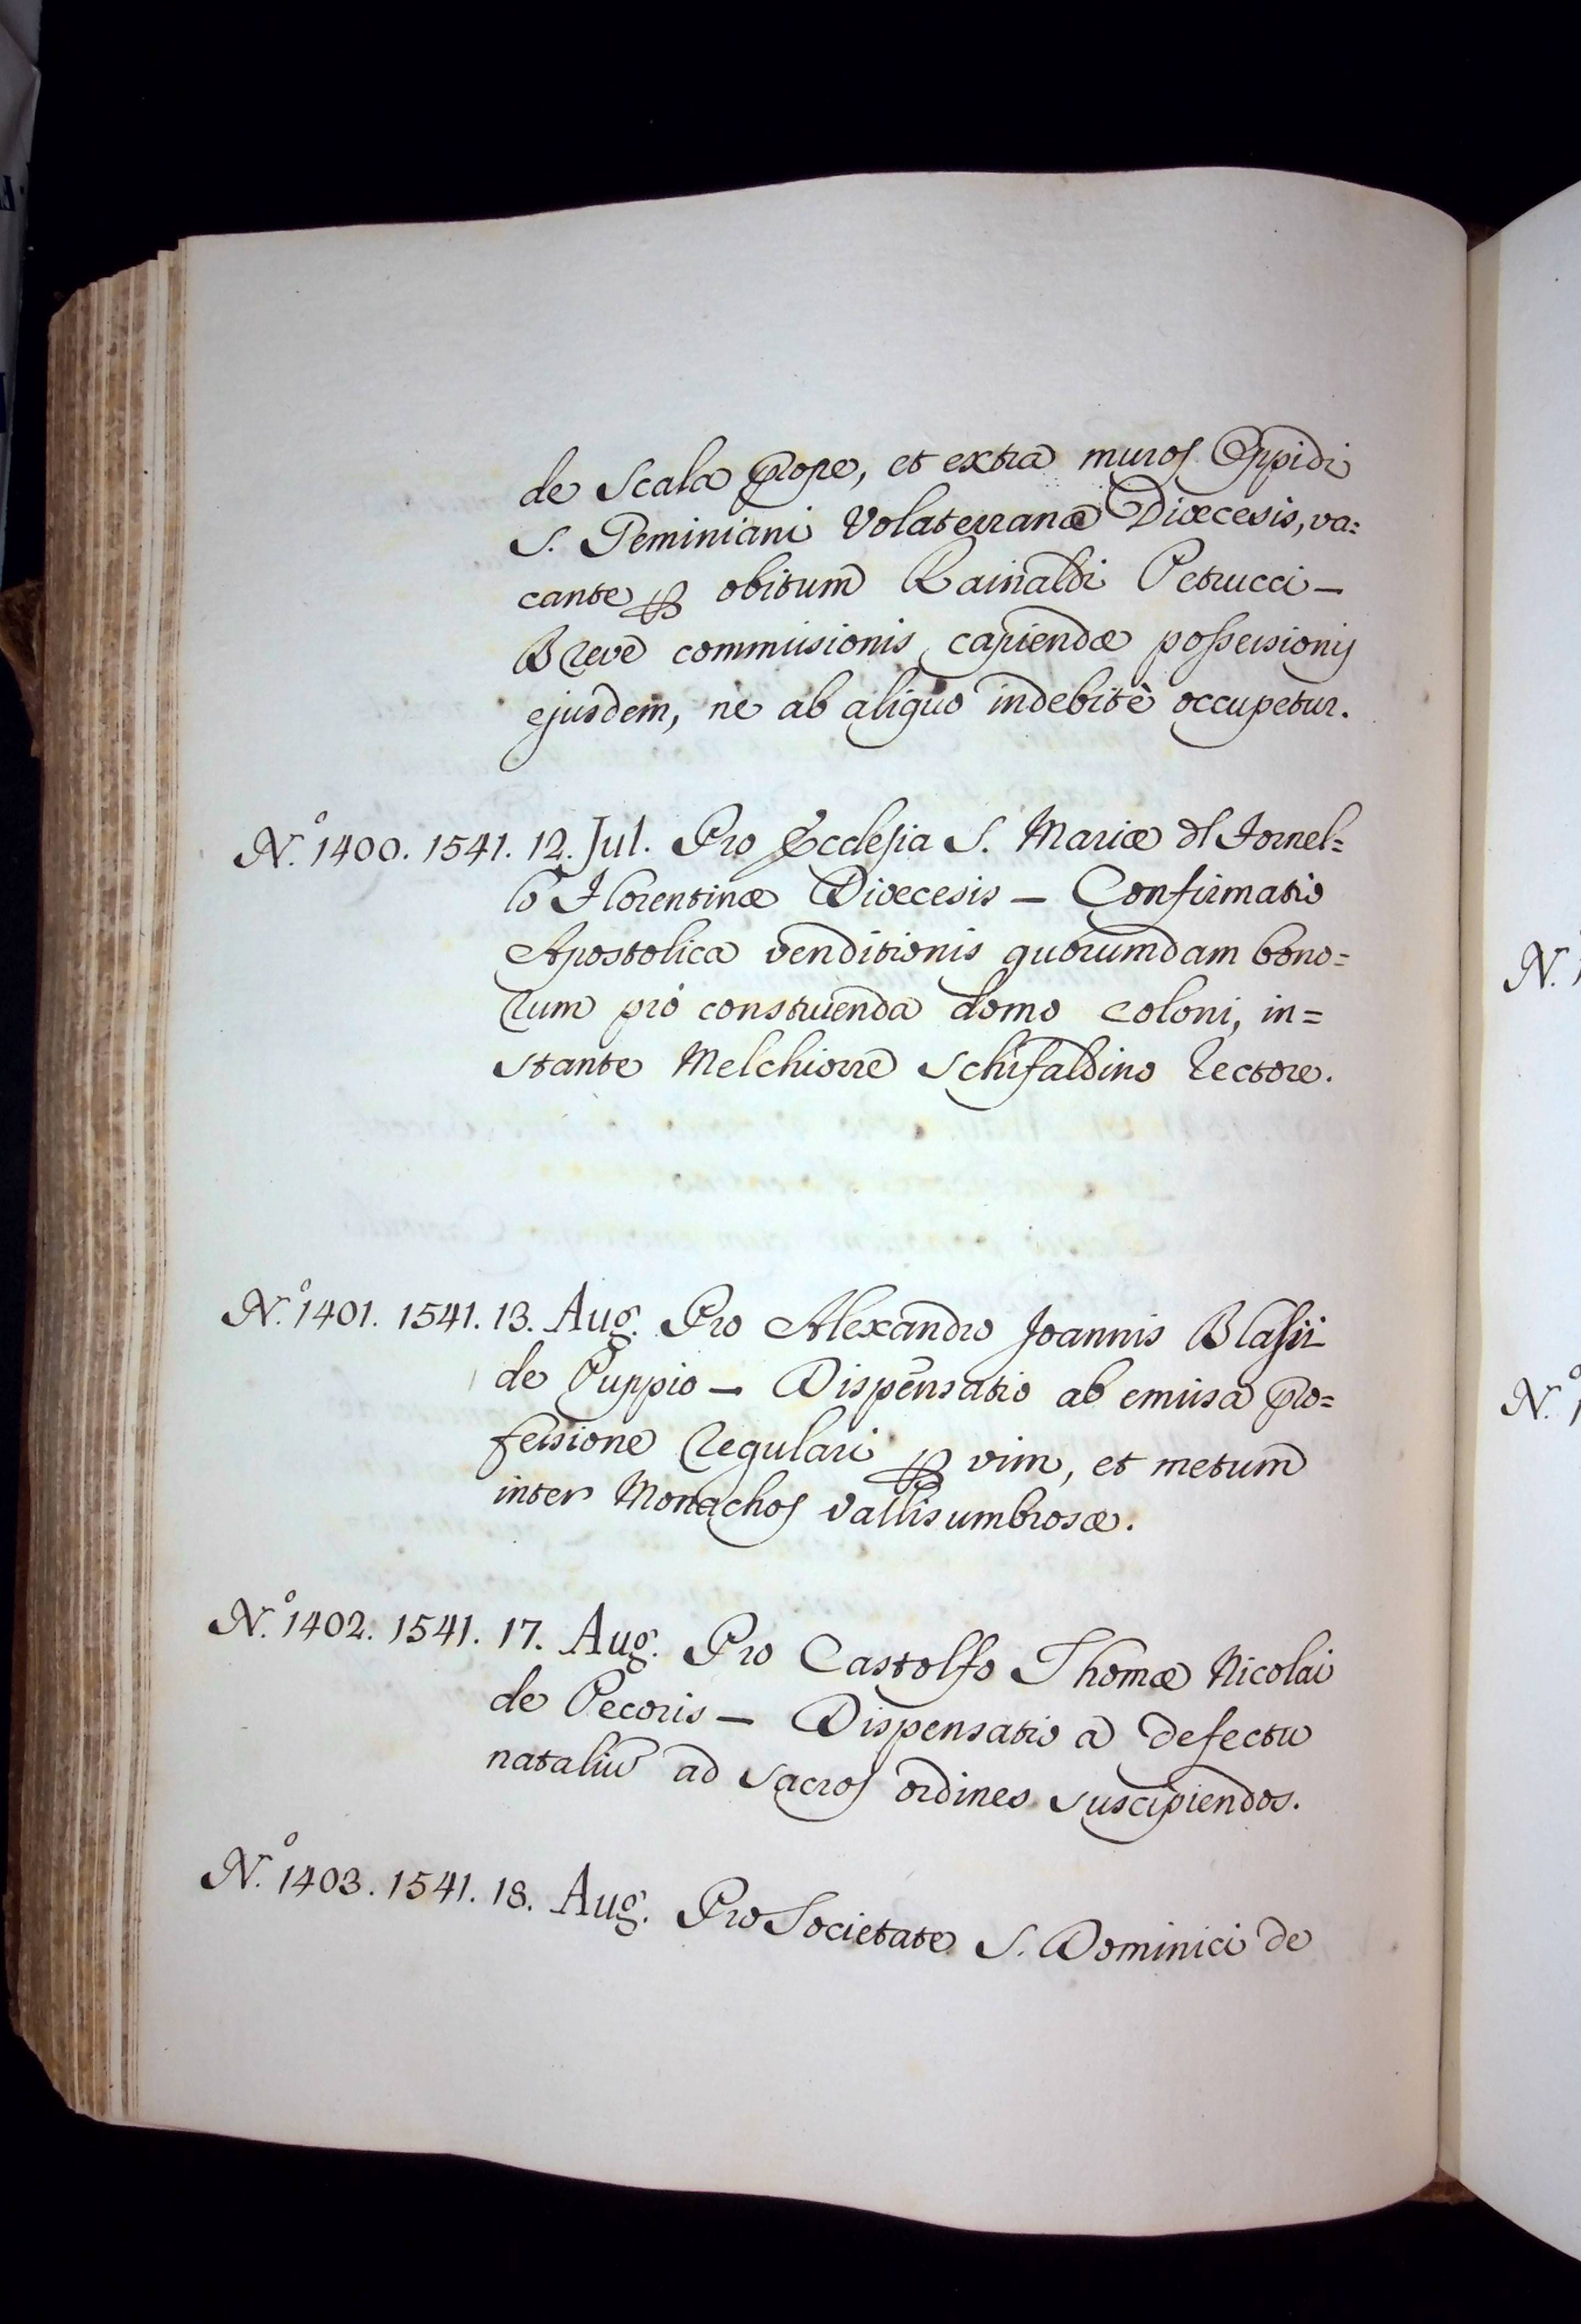 de Scala prope, et extra muros Oppidi
S. Geminiani Volaterranæ Diœcesis, va=
cante ꝑ obitum Rainaldi Petrucci —
Breve commissionis capiendæ possessionis
ejusdem, ne ab aliquo indebitè occupetur.
N.º 1400. 1541. 12. Jul. Pro Ecclesia S. Mariæ dl Fornel=
lo Florentinæ Diœcesis — Confirmatio
Apostolica venditionis quorumdam bono=
rum pro construenda domo coloni, in=
stante Melchiorre Schifaldino Rectore.
N.º 1401. 1541. 13. Aug. Pro Alexandro Joannis Blasii
de Puppio — Dispensatio ab emissa pro=
fessione regulari ꝑ vim, et metum
inter Monachos Vallisumbrosæ.
N.º 1402. 1541. 17. Aug. Pro Castolfo Thomæ Nicolai
de Pecoris — Dispensatio a defectu
nataliũ ad sacros ordines suscipiendos.
N.º 1403. 1541. 18. Aug. Pro Societate S. Dominici de
N.
N.º